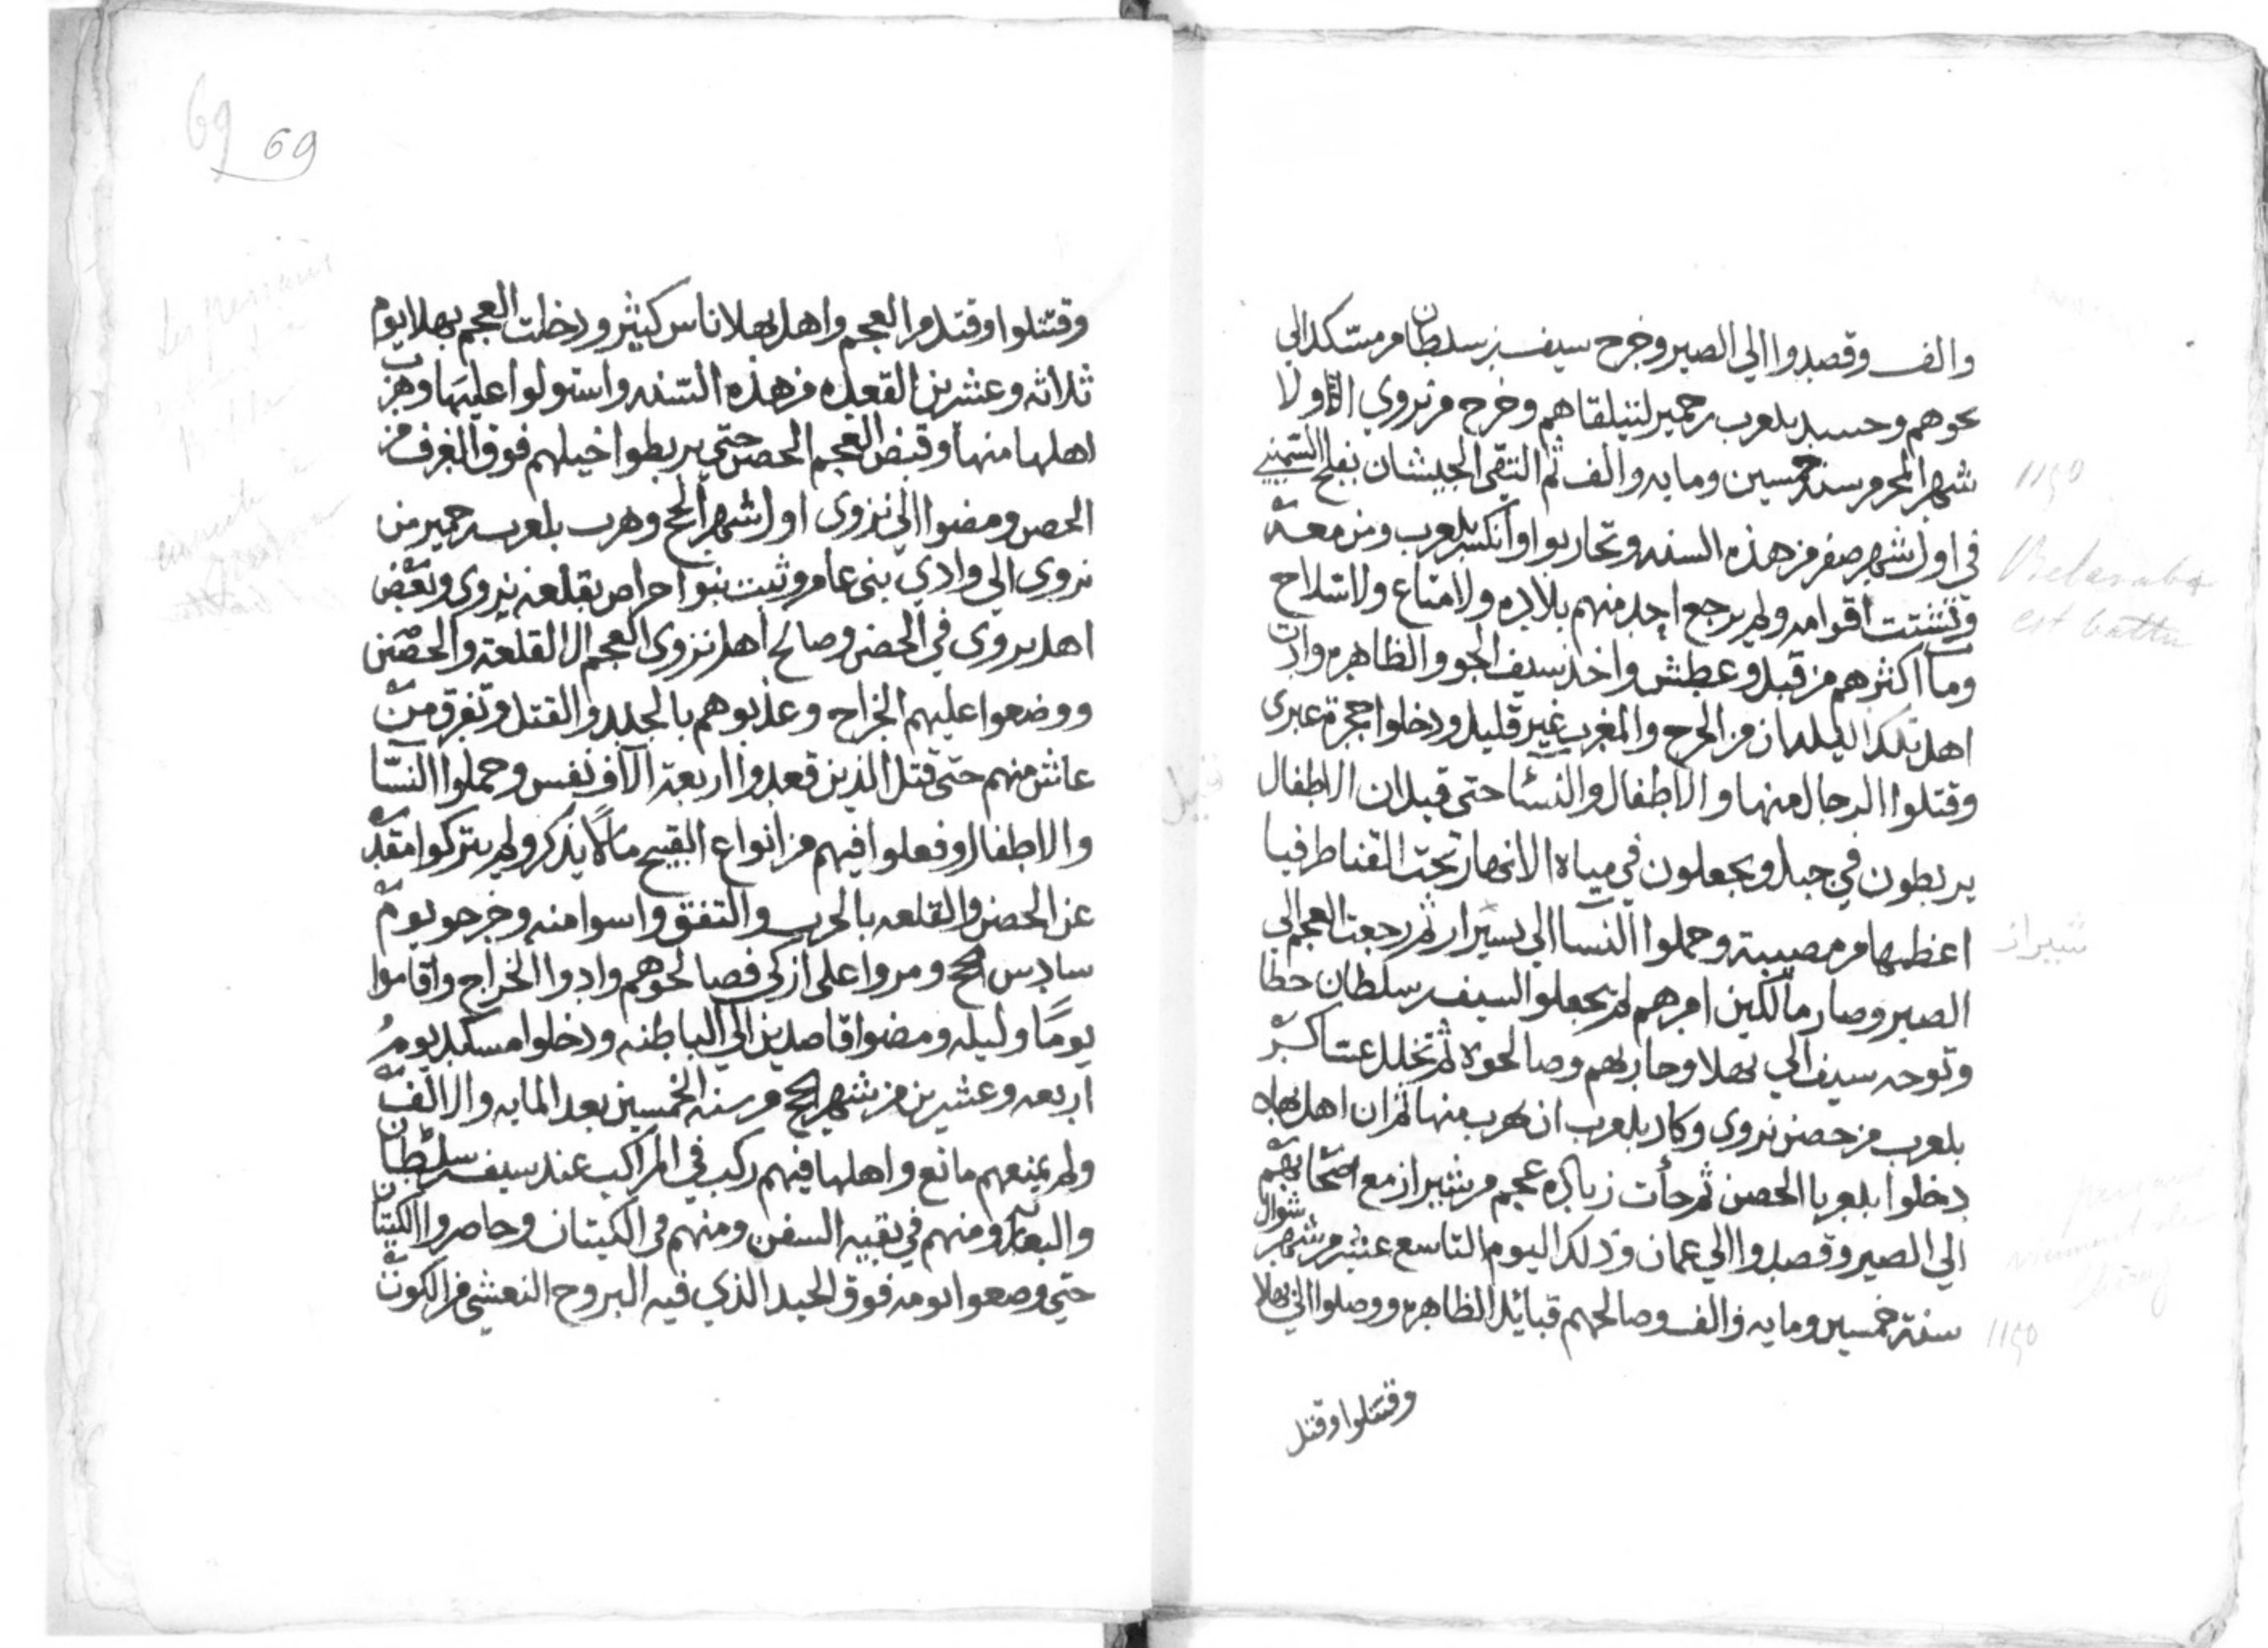 والف وقصدوا الي الصير وخرج سيف بن سلطان من مسكد الي
نحوهم وحسد بلعرب حمير لنيلقاهم وخرج من نزوي اولا
شهر المحرم سنه خمسين ومايه والف ثم التقي الجيشان بفلج السميني
في اول شهر صفر من هذه السنه وتحاربوا وانكسر بلعرب ومن معه
وتشتت اقوامه ولم يرجع احد منهم بلاده ولا متاع ولا سلاح
ومآ اكثرهم من قبل وعطش واخذ سيف الجو والظاهره وادن
اهل تلك البلدان من الحرح والمغرب غير قليل ودخلوا حجرة عبري
وقتلوا الرجال منها والاطفال والنسآ حتي قيل ان الاطفال
يربطون في حبل ويجعلون في مياة الانهار تحت القناطر فيا
اعظمها من مصيبة وحملوا النسا الي سيرار ثم رجعت العجم الي
الصير وصار مالكين امرهم لم يجعلوا لسيف بن سلطان حظا
وتوجه سيف الي بهلا وحاربهم وصالحوة ثم تخلل عساكر
بلعرب من حصن نزوي وكاد بلعرب ان يهرب منها ثم ان اهل بهلا
دخلوا بلعربا الحصن ثم جأت زيادة عجم من شيراز مع اصحابهم
الي الصير وقصدوا الي عمان وذلك اليوم التاسع عشر من شهر شوال
سنة خمسين ومايه والف وصالحهم قبائل الظاهره ووصلوا الي بهلا
وقتتلوا وقتل
1150
Belaraba
est battu
شيراز
1150
69 69
وقتتلوا وقتل من العجم واهل بهلا ناس كيثر ودخلت العجم بهلا يوم
ثلاثه وعشرين القعده من هذه السنه واستولوا عليها وهرب
اهلها منها وقبض العجم الحصن حتي يربطوا خيلهم فوق الغرف من
الحصن ومضوا الي نزوي اول شهر الحج وهرب بلعرب حمير من
نزوي الي وادي بني عامر وثبت بنوا حراص بقلعة نزوي وبعض
اهل نروي في الحضن وصالح اهل نزوي العجم الا القلعة والحصن
ووضعوا عليهم الخراج وعذبوهم بالجلد والقتل وتفرق من
عاش منهم حتي قتل الذين قعدوا اربعة الآف نفس وحملوا النسا
والاطفال وفعلوا فيهم من انواع القبيح ما لا يذكر ولم يتركوا مقد
عن الحصن والقلعه بالحرب والتفق واسوا منه وخرجو يوم
سادس الحج ومروا علي ازكي فصالحوهم وادوا الخراج واقاموا
يومًا وليله ومضوا قاصدين الي الباطنه ودخلوا مسكد يوم
اربعه وعشرين من شهر الحج من سنه الخمسين بعد المايه والالف
ولم يمنعهم مانع واهلها فيهم ركب في المراكب عند سيف بن سلطان
والبعار ومنهم في بقيه السفن ومنهم في الكيتان وحاصروا الكيتان
حتي وصعوا بومه فوق الحيد الذي فيه البروح النعشي من الكوت